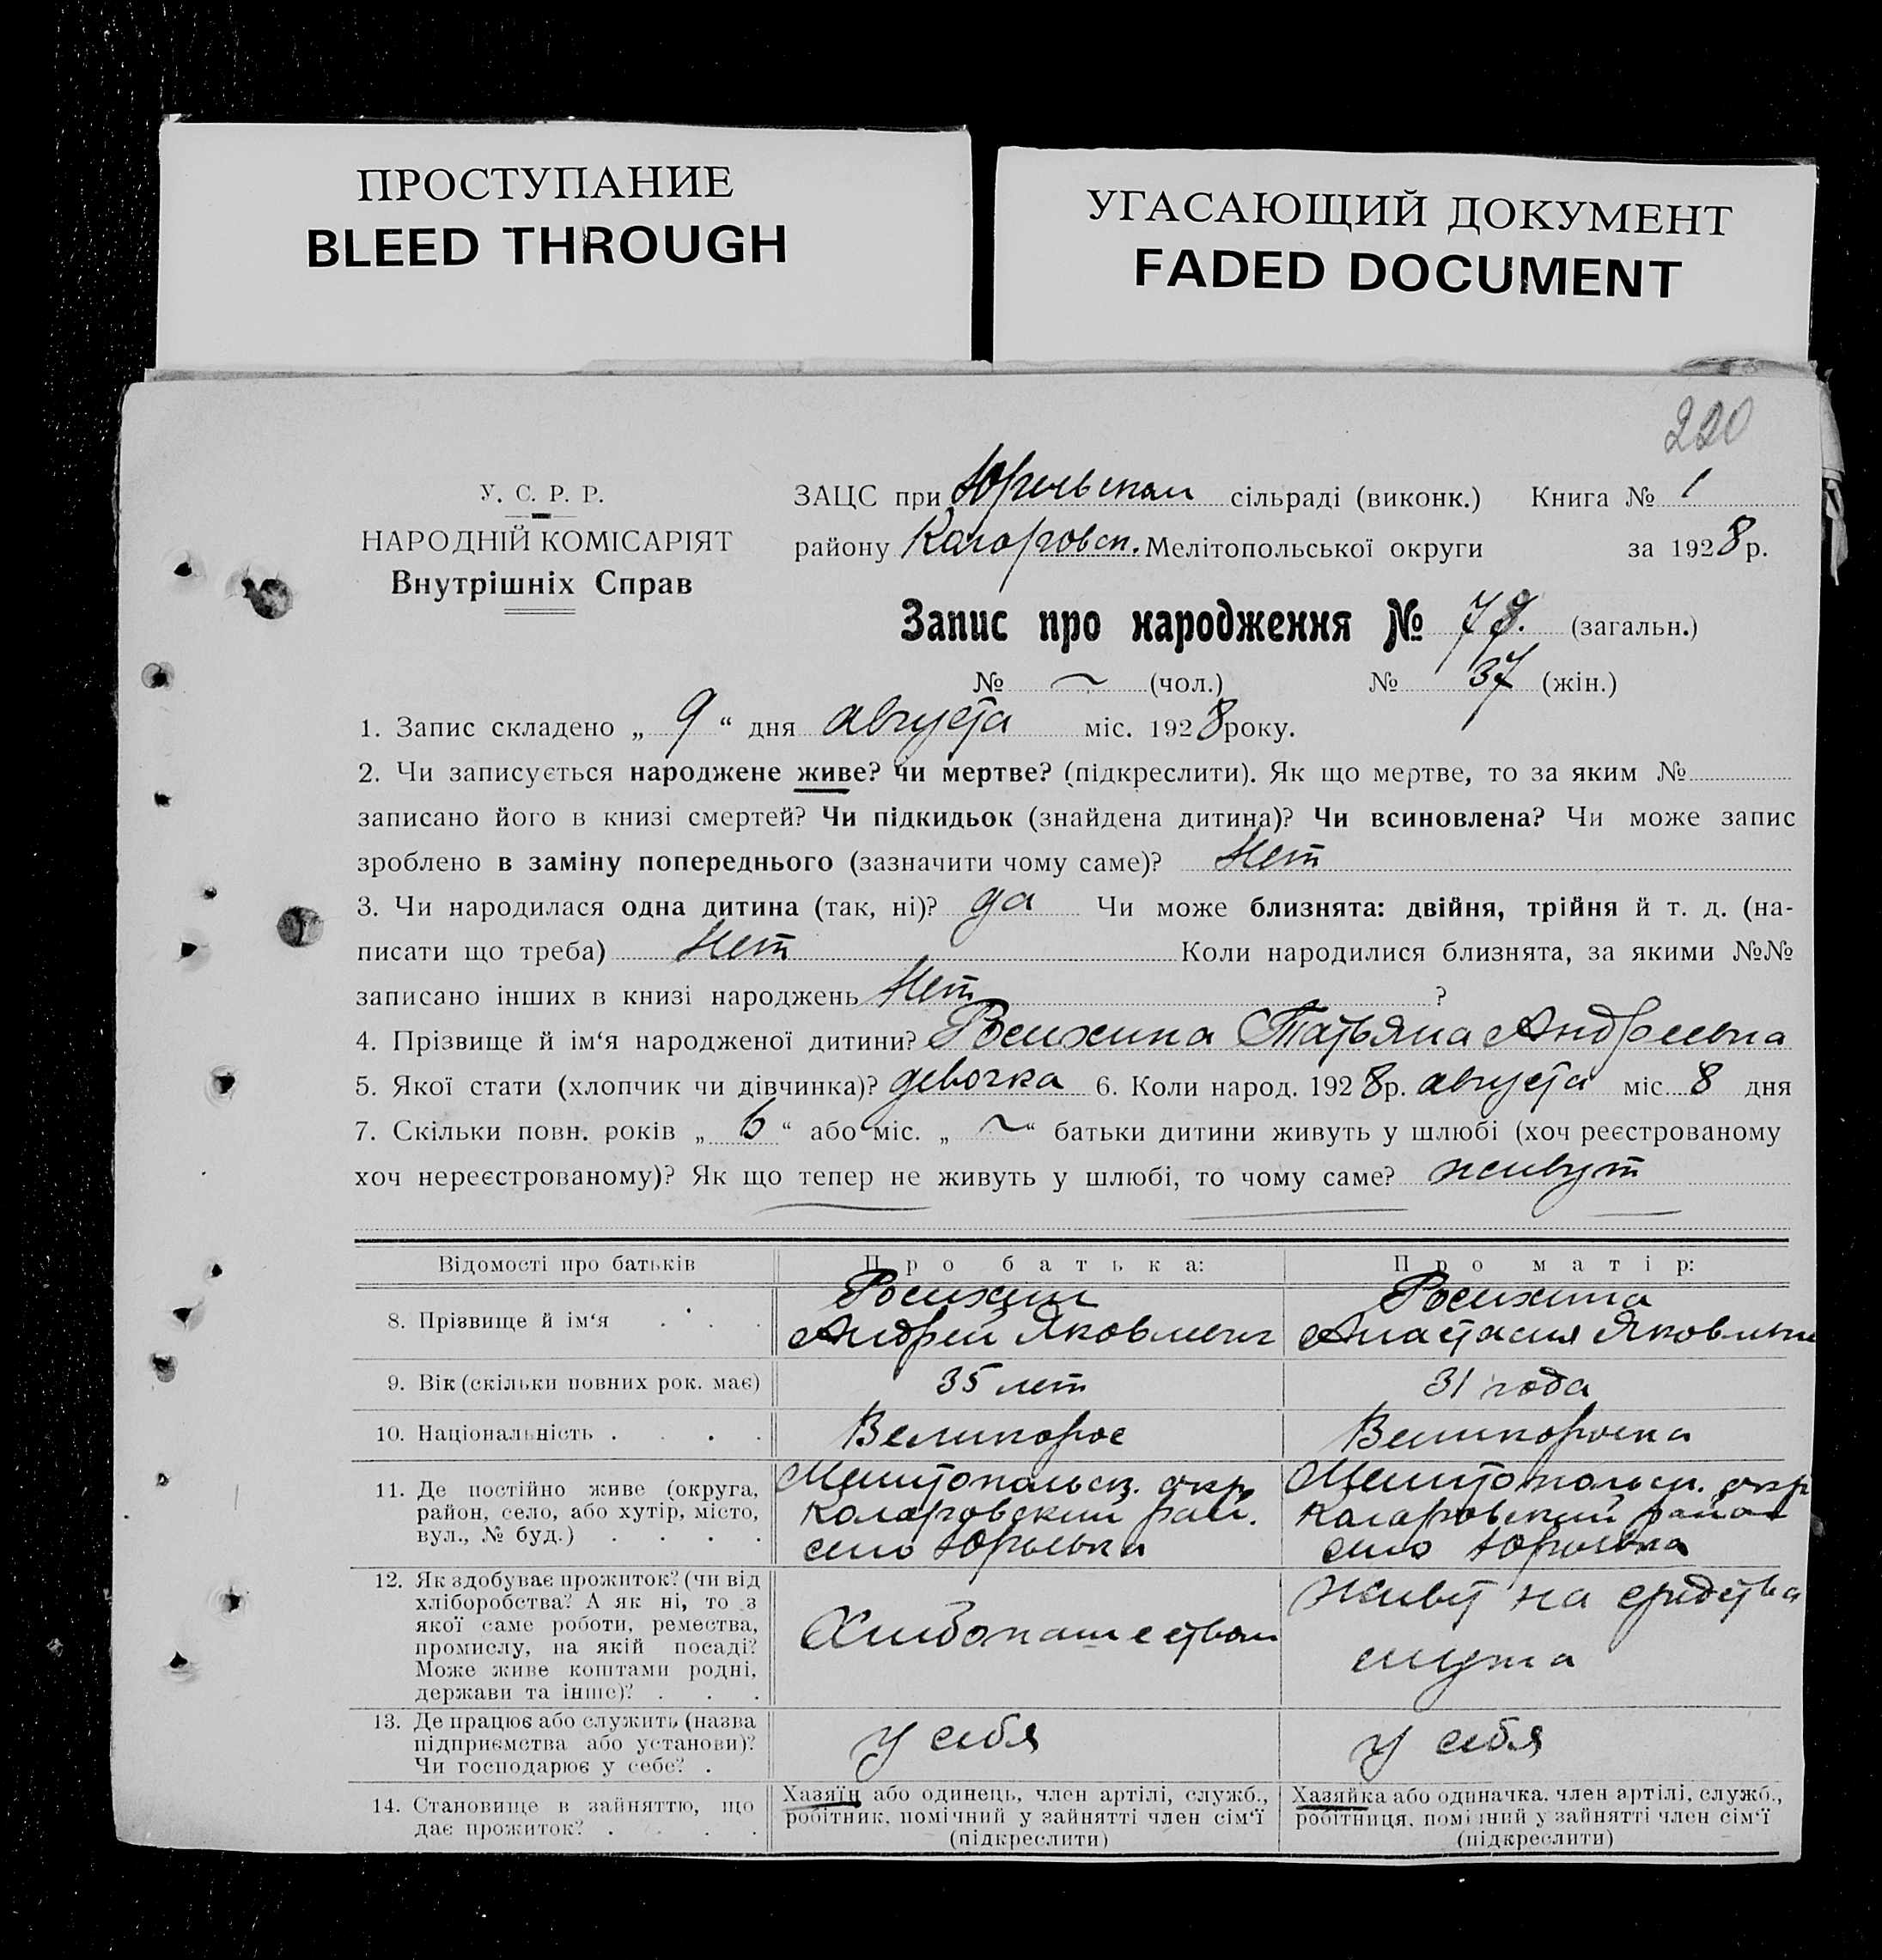 ПРОСТУПАНИЕ
BLEED THROUGH
УГАСАЮЩИЙ ДОКУМЕНТ
FADED DOCUMENT
220
У. С. Р. Р.
НАРОДНІЙ КОМІСАРІЯТ
Внутрішніх Справ
ЗАЦС при Юрьевском сільраді (виконк.) Книга № 1
району Коларовск. Мелітопольської округи за 1928 р.
Запис про народження № 78. (загальн.)
№ ~ (чол.) № 37 (жін.)
1. Запис складено „ 9 “ дня августа міс. 1928 року.
2. Чи записується народжене живе? чи мертве? (підкреслити). Як що мертве, то за яким №
записано його в книзі смертей? Чи підкидьок (знайдена дитина)? Чи всиновлена? Чи може запис
зроблено в заміну попереднього (зазначити чому саме)? Нет
3. Чи народилася одна дитина (так, ні)? да Чи може близнята: двійня, трійня й т. д. (на-
писати що треба) Нет Коли народилися близнята, за якими №№
записано інших в книзі народжень Нет ?
4. Прізвище й ім‘я народженої дитини? Росихина Татьяна Андреевна
5. Якої стати (хлопчик чи дівчинка)? девочка 6. Коли народ. 1928 р. августа міс. 8 дня
7. Скільки повн. років „ 6 “ або міс. „ ~ “ батьки дитини живуть у шлюбі (хоч реєстрованому
хоч нереєстрованому)? Як що тепер не живуть у шлюбі, то чому саме? живут
Відомості про батьків Про батька: Про матір:
8. Прізвище й ім‘я
Росихин
Андрей Яковлевич
Росихина
Анастасия Яковлевна
9. Вік (скільки повних рок. має) 35 лет 31 года
10. Національність Великорос Великороска
11. Де постійно живе (округа,
район, село, або хутір, місто,
вул., № буд.)
Мелитопольск. окр.
Коларовский рай.
село Юрьевка
Мелитопольск. окр
Коларовский район
село Юрьевка
12. Як здобуває прожиток? (чи від
хліборобства? А як ні, то з
якої саме роботи, ремества,
промислу, на якій посаді?
Може живе коштами родні,
держави та інше)?
Хлебопашеством
Живет на средства
мужа
13. Де працює або служить (назва
підприємства або установи)?
Чи господарює у себе?
у себя
у себя
14. Становище в зайняттю, що
дає прожиток?
Хазяїн або одинець, член артілі, служб.,
робітник, помічний у зайнятті член сім‘ї
(підкреслити)
Хазяйка або одиначка, член артілі, служб.,
робітниця, помічний у зайнятті член сім‘ї
(підкреслити)